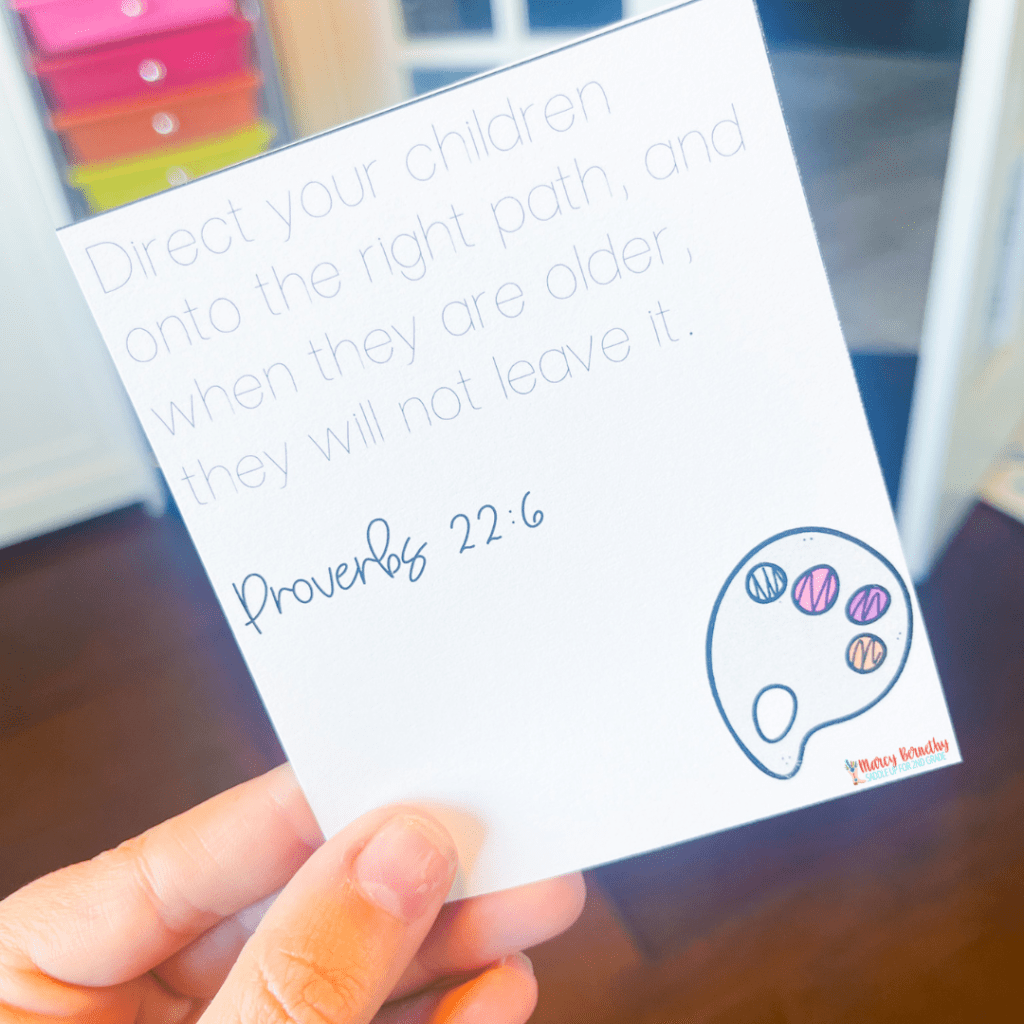 Direct your children
onto the right path, and
when they are older,
they will not leave it.
Proverbs 22:6
Marcy Bernethy
SADDLE UP FOR 2ND GRADE